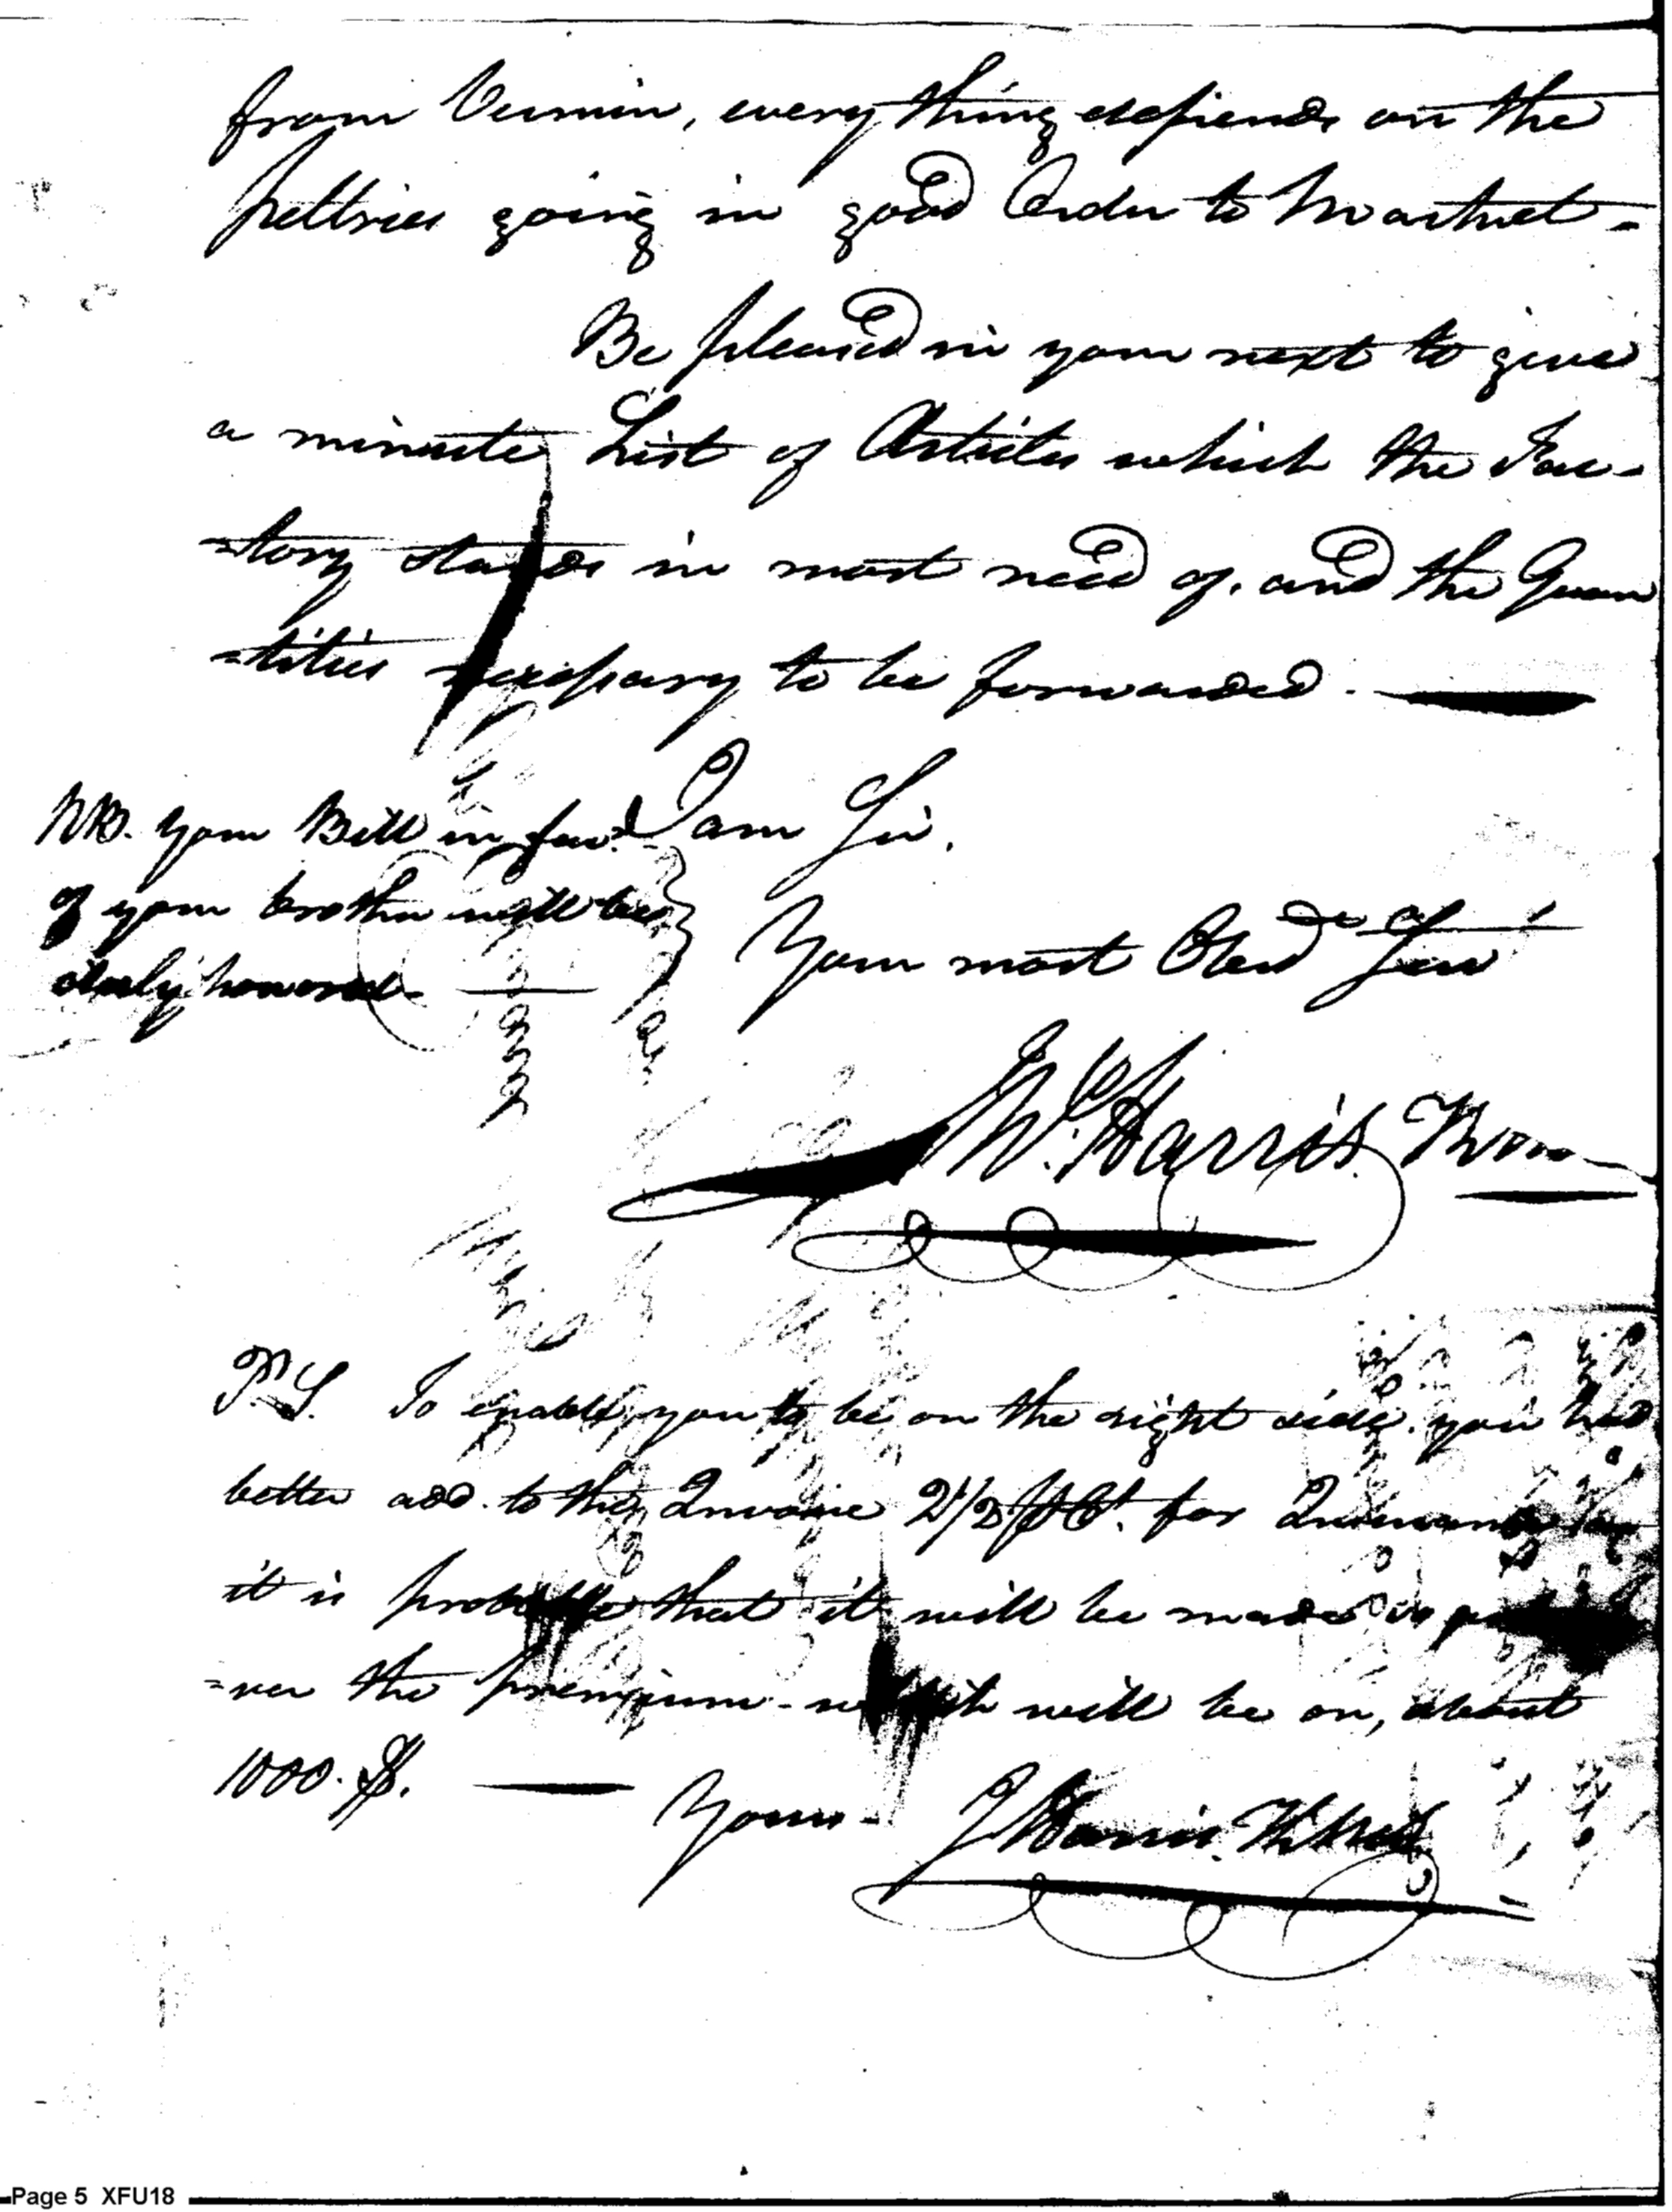 from Vermin, every thing depends on the
peltries going in good Order to Market -
Be pleased in your next to give
a minute List of Articles which the Fac-
-tory stands in most need of, and the Quan
-tities necessary to be forwarded. —
NB. your Bill in favr.
of your brother will be
duly honored. —
I am Sir,
Your most Obed Serv
Wm. Harris
P.S. To enable you to be on the right side, you had
better add to the Invoice 2 1/2 p Ct. for
it is probable that it will be made
the premium - which will be on, about
1000. $. —
Yours -
Harris
Page 5 XFU18